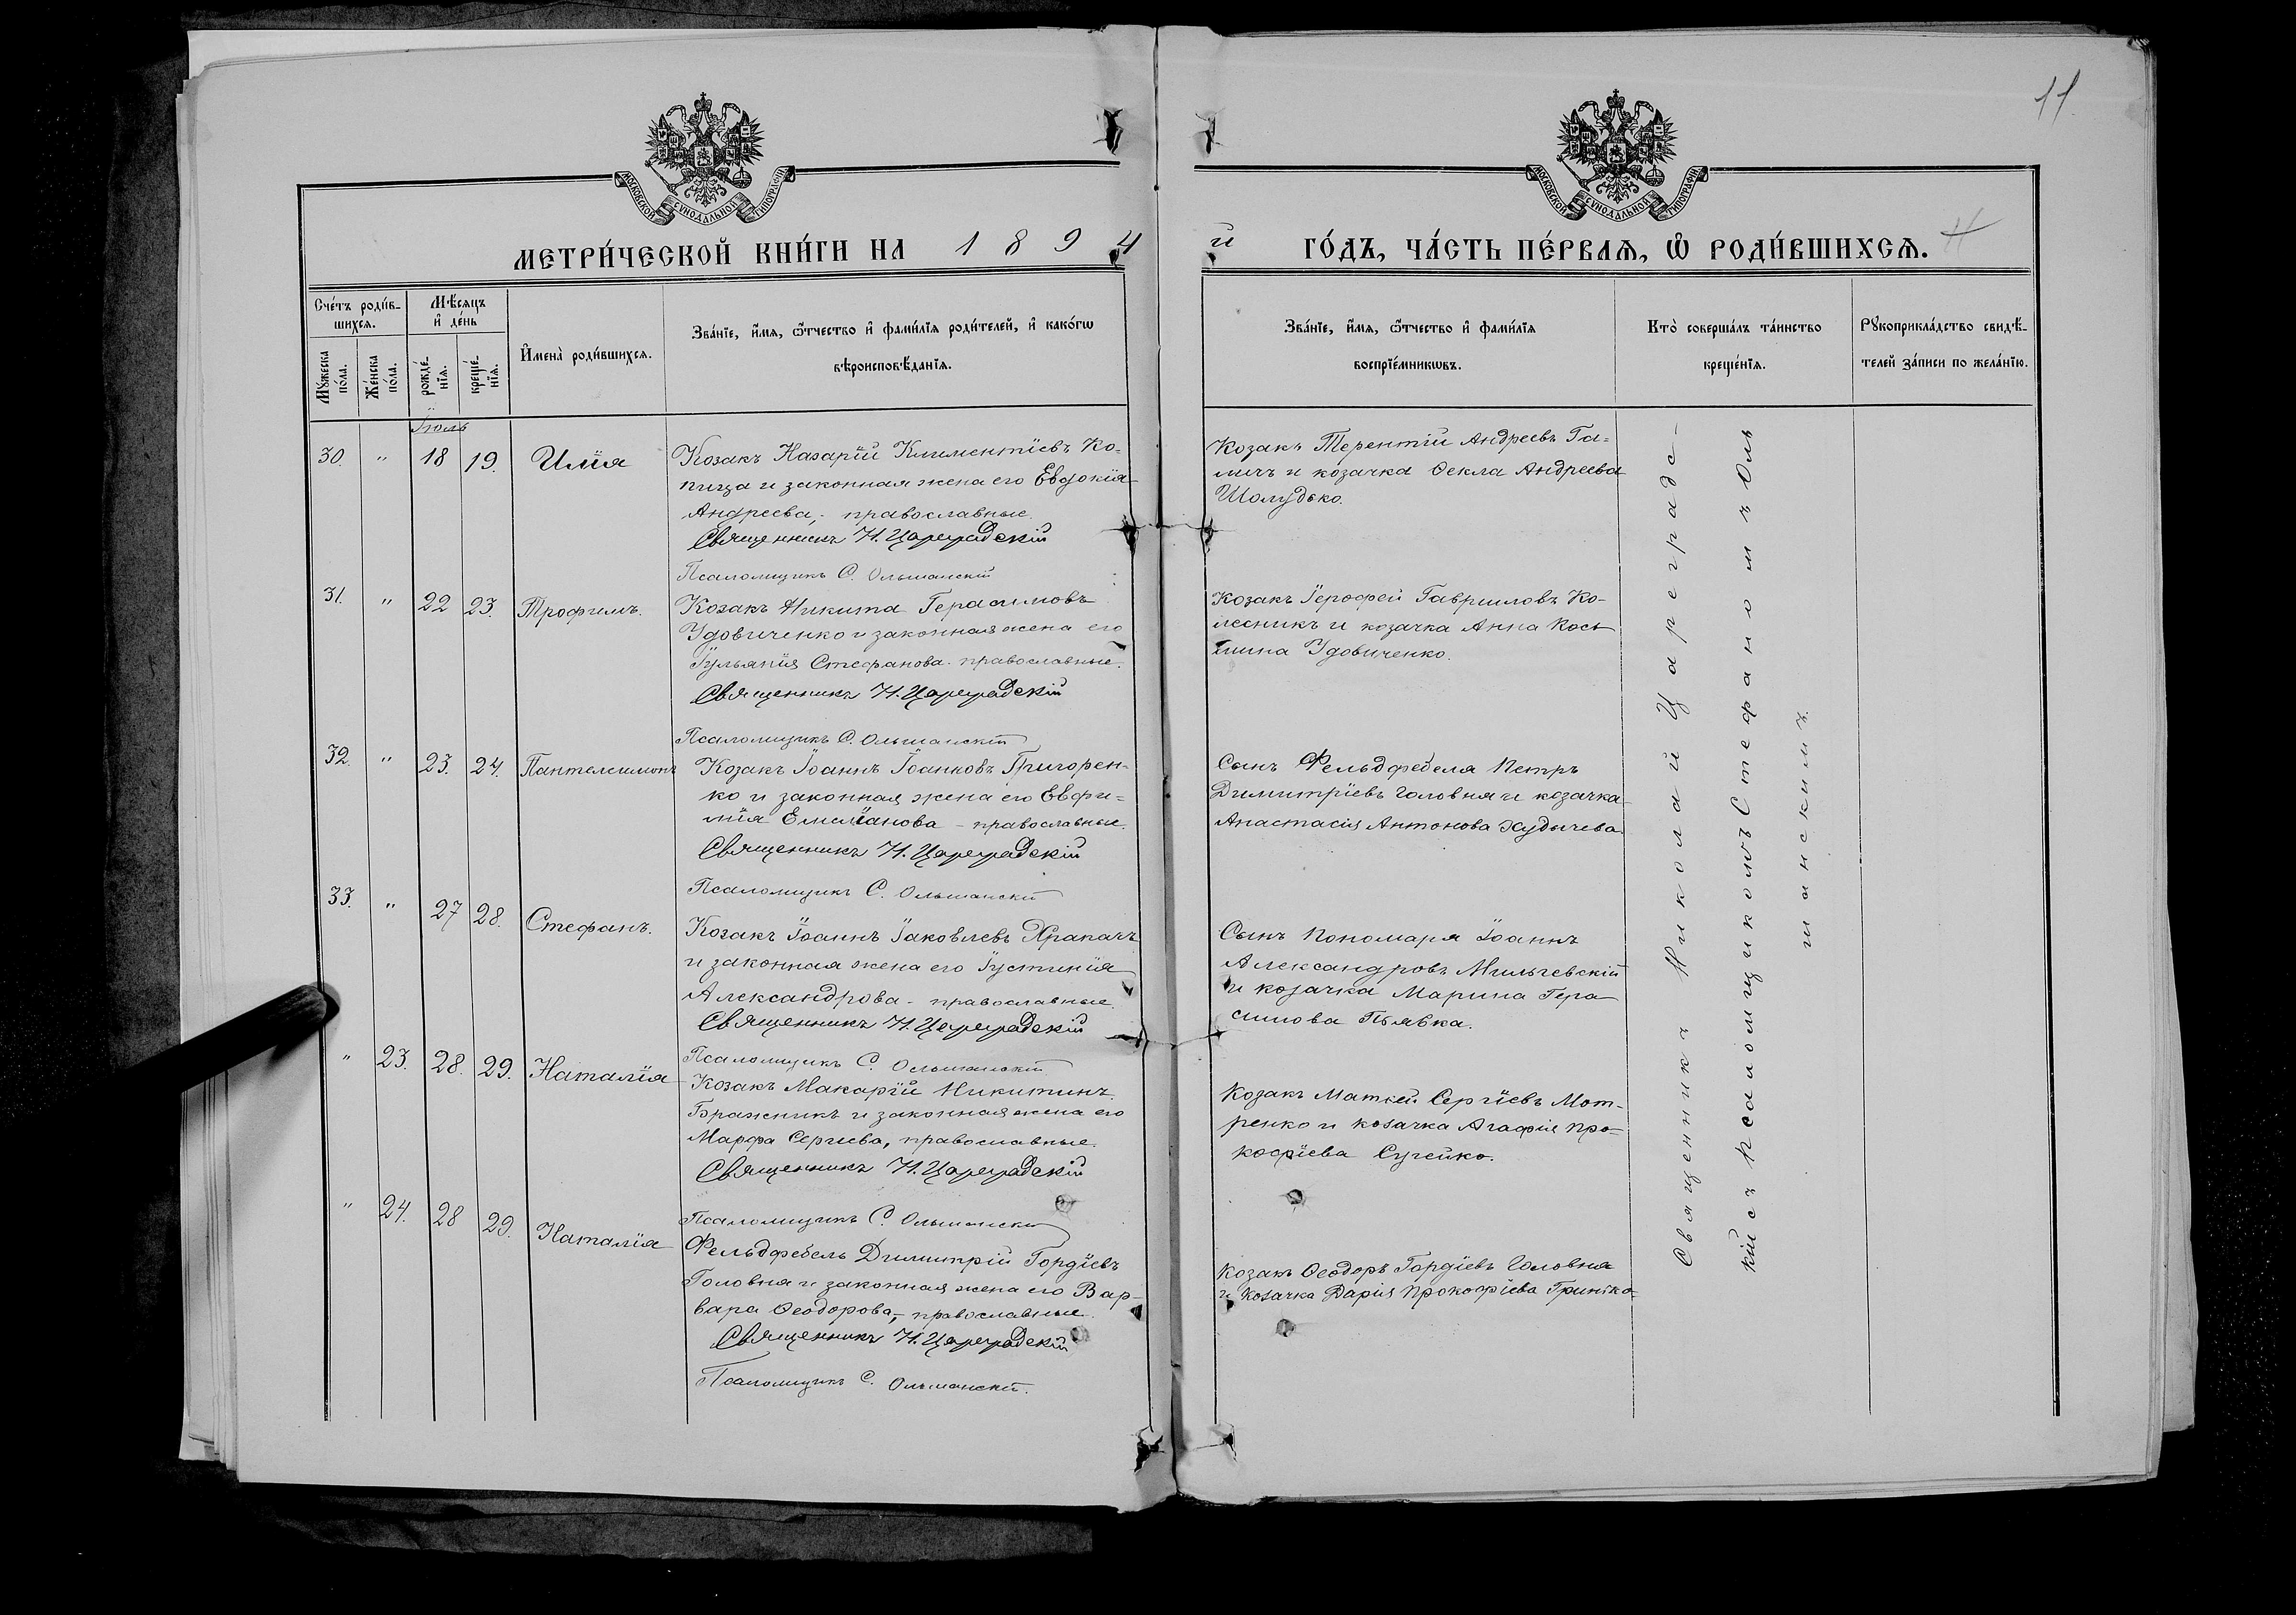 11.
МОСКОВСКОЙ СѴНОДАЛЬНОЙ ТИПОГРАФІИ
МОСКОВСКОЙ СѴНОДАЛЬНОЙ ТИПОГРАФІИ
МЕТРИ́ЧЕСКОЙ КНИ́ГИ НА 1894
й ГО́ДЪ, ЧА́СТЬ ПЕ́РВАѦ, Ѡ҆ РОДИ́ВШИХСѦ.
Сче́тъ роди́в-
шихсѧ.
Мꙋ́жеска
по́ла.
Же́нска
по́ла.
Мѣ́сѧцъ
и҆ де́нь
рожде́-
нїѧ.
креще́-
нїѧ.
И҆мена̀ роди́вшихсѧ.
Зва́нїе, и҆́мѧ, ѻ҆́тчество и҆ фами́лїѧ роди́телей, и҆ како́гѡ
вѣроисповѣ́данїѧ.
Зва́нїе, и҆́мѧ, ѻ҆́тчество и҆ фами́лїѧ
воспрїе́мникѡвъ.
Кто̀ соверша́лъ та́инство
креще́нїѧ.
Рꙋкоприкла́дство свидѣ́-
телей за́писи по жела́нїю.
Іюль
30. " 18 19. Илія
Козакъ Назарій Климентіевъ Ко-
пица и законная жена его Евдокія
Андреева, православные.
Священникъ Н. Цареградскій
Псаломщикъ С. Ольшанскій
Козакъ Терентій Андреевъ Га-
личъ и козачка Ѳекла Андреева
Шолудько.
31. " 22 23. Трофимъ.
Козакъ Никита Герасимовъ
Удовиченко и законная жена его
Іульянія Стефанова - православные.
Священникъ Н. Цареградскій
Псаломщикъ С. Ольшанскій
Козакъ Іерофей Гавриловъ Ко-
лесникъ и козачка Анна Кось
мина Удовиченко.
32. " 23. 24. Пантелеимонъ
Козакъ Іоаннъ Іоанновъ Григорен-
ко и законная жена его Евфи-
мія Емеліанова - православные.
Священникъ Н. Цареградскій
Псаломщикъ С. Ольшанскій
Сынъ Фельдфебеля Петръ
Димитріевъ Головня и козачка
Анастасія Антонова
33. " 27 28. Стефанъ.
Козакъ Іоаннъ Іаковлевъ Храпачъ
и законная жена его Іустинія
Александрова - православные
Священникъ Н. Цареградскій
Псаломщикъ С. Ольшанскій
Сынъ Пономаря Іоаннъ
Александровъ Мильчевскій
и козачка Марина Гера
симова Пьявка.
" 23. 28. 29. Наталія
Козакъ Макарій Никитинъ
Бражникъ и законная жена его
Марфа Сергиева, православные.
Священникъ Н. Цареградскій
Псаломщикъ С. Ольшанскій
Козакъ Матѳей Сергіевъ Мот-
ренко и козачка Агафія Про-
кофіева Сугейко.
" 24. 28 29. Наталія
Фельдфебель Димитрій Гордіевъ
Головня и законная жена его Вар-
вара Ѳеодорова, - православные.
Священникъ Н. Цареградскій
Псаломщикъ С. Ольшанскій.
Козакъ Ѳеодоръ Гордіевъ Головня
и Козачка Дарія Прокофіева
Священникъ Николай Цареградс-
кій съ псаломщикомъ Стефаномъ Оль
шанскимъ.